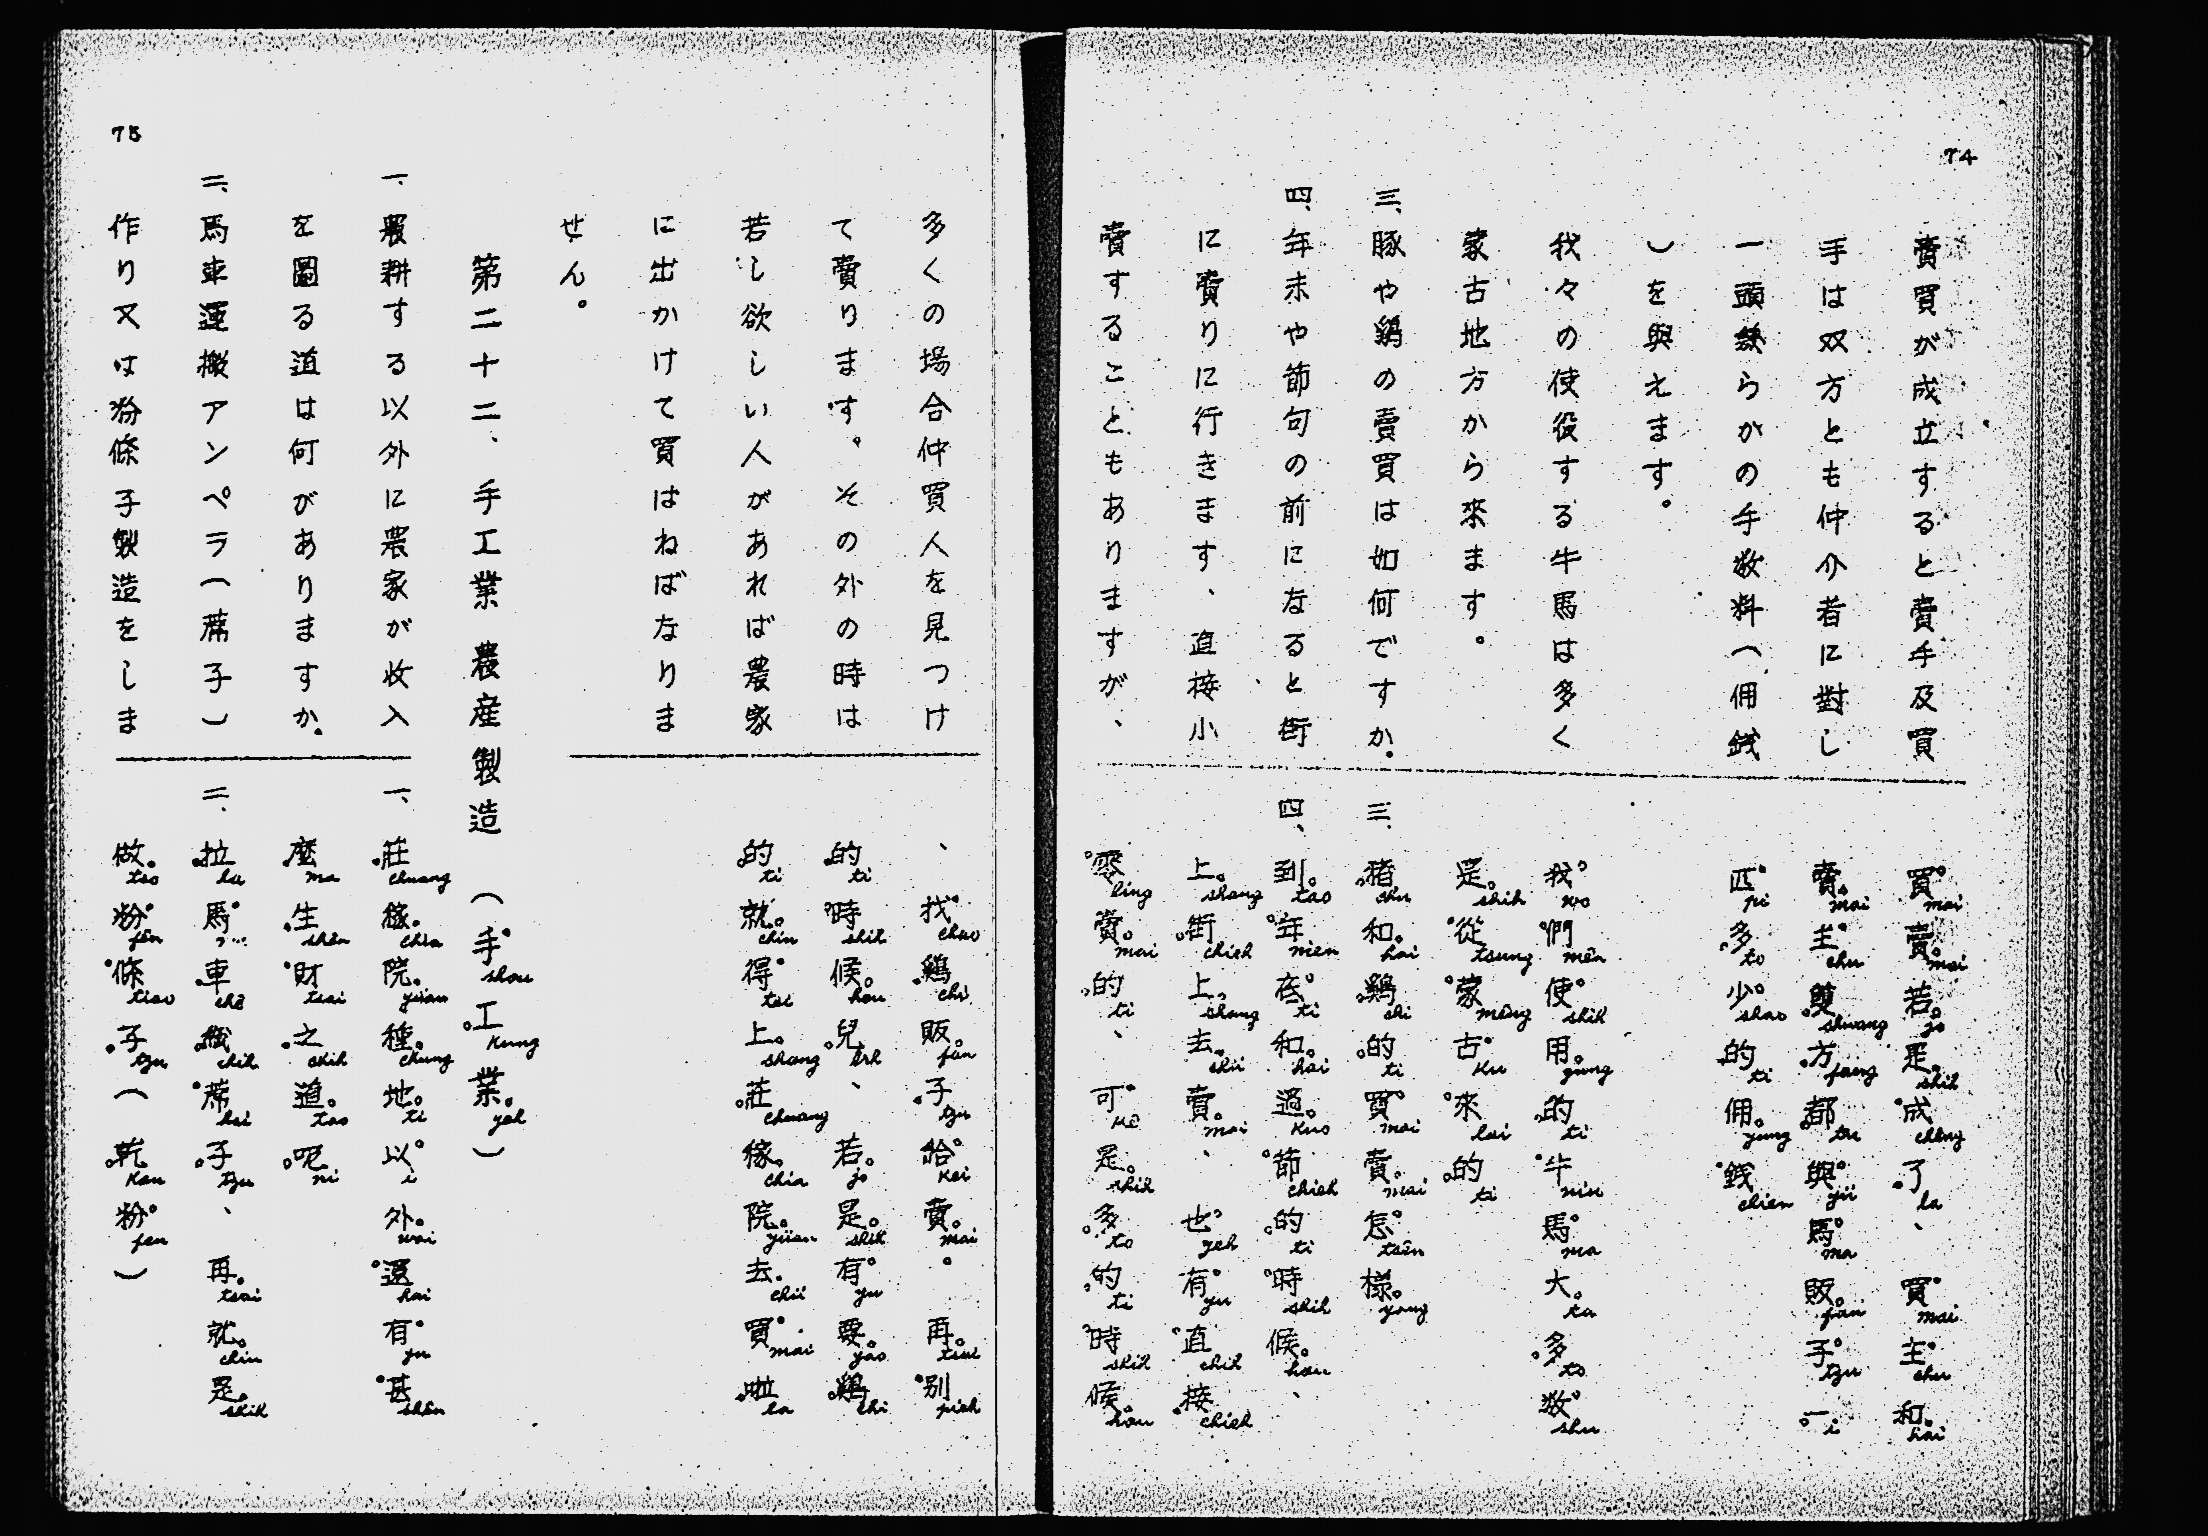 74
賣買が成立すると賣手及買
手は双方とも仲介者に對し
一頭幾らかの手数料（佣銭
）を與えます。
我々の使役する牛馬は多く
蒙古地方から來ます。
三、豚や鷄の賣買は如何ですか。
四、年末や節句の前になると街
に賣りに行きます、直接小
賣することもありますが、
買mai賣mai若jo是shih成chêng了la、買mai主chu和hai
賣mai主chu雙shwang方fang都tu與yü馬ma販fan子tzu一i
匹pi多to少shao的ti佣yung銭chien
我wo們mên使shih用yung的ti牛niu馬ma大ta多to数shu
是shih從tsung蒙mêng古ku來lai的ti
三、猪chu和hai鷄chi的ti買mai賣mai怎tsên樣yang
四、到tao年nien底ti和hai過kuo節chieh的ti時shih候hou、
上shang街chieh上shang去chü賣mai、也yeh有yu直chih接chieh
零ling賣mai的ti、可kê是shih多to的ti時shih候hou
75
多くの場合仲買人を見つけ
て賣ります。その外の時は
若し欲しい人があれば農家
に出かけて買はねばなりま
せん。
、找chao鷄chi販fan子tzu給kei賣mai。再tsai別pieh
的ti時shih候hou兒êrh、若jo是shih有yu要yao鷄chi
的ti就chiu得tei上shang莊chuang稼chia院yüan去chü買mai啦la
第二十二、手工業 農産製造（手shou工kung業yeh）
一、農耕する以外に農家が收入
を圖る道は何がありますか。
二、馬車運搬アンペラ（蓆子）
作り又は粉條子製造をしま
一、莊chuang稼chia院yüan種chung地ti以i外wai還hai有yu甚shên
麼ma生shên財tsai之chih道tao呢ni
二、拉la馬車chê織chih蓆hsi子tzu、再tsai就chiu是shih
做tso粉fên條tiao子tzu（乾kan粉fen）